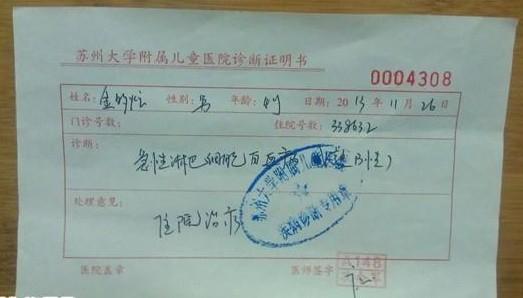 苏州大学附属儿童医院诊断证明书
0004308
姓名: 性别: 男 年龄: 日期: 2013 年 11 月 26 日
门诊号数: 住院号数: 338632
诊断:
急性淋巴细胞白血病
处理意见:
住院治疗
苏州大学附属儿
疾病诊断专用章
医院盖章 医师签字
A148